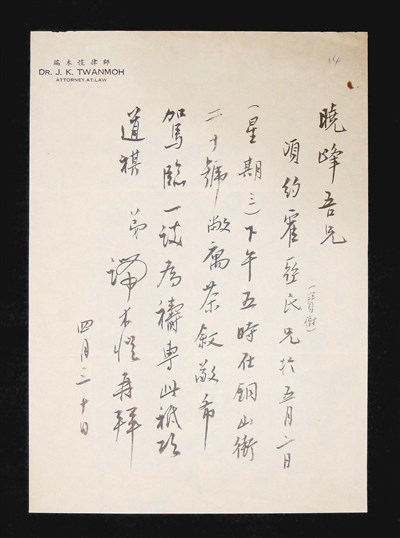 端木愷律師
DR. J. K. TWANMOH
ATTORNEY-AT-LAW
曉峰吾兄
頃約霍亞民兄(寶樹)於五月二日
(星期三)下午五時在銅山街
二十號敝寓茶敘敬希
駕臨一談為禱專此祗頌
道祺 弟 端木愷再拜
四月三十日